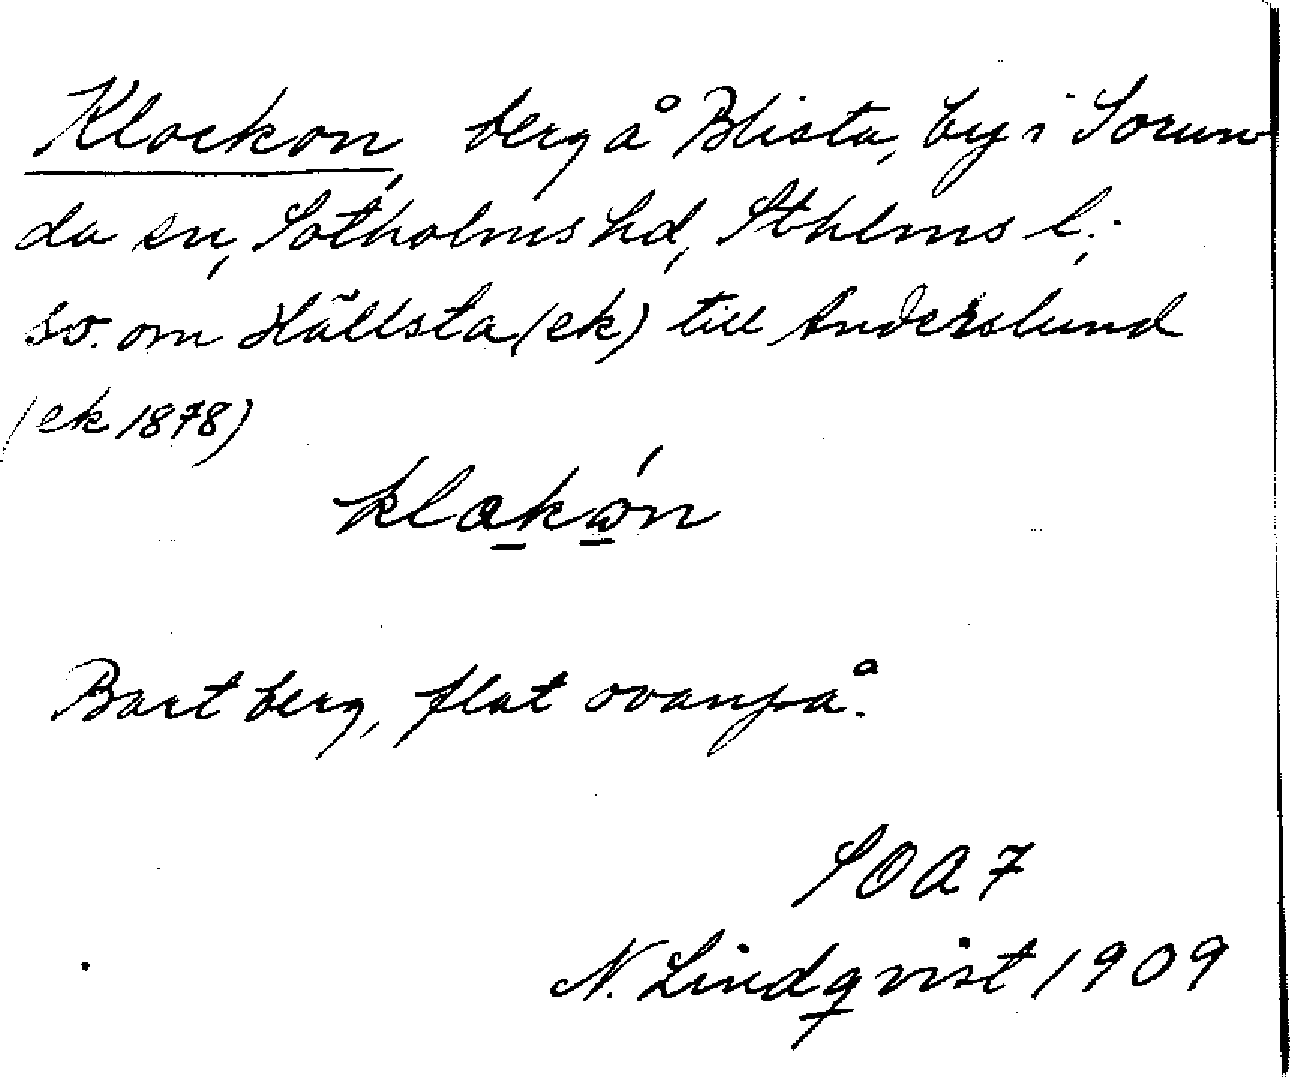 Klockon, berg å Blista, by i Sorun
da sn, Sotholms hd, Sthlms l.;
so. om Hällsta (ek) till Anderslund
(ek 1878)
klakón
Bart berg, flat ovanpå.
SOA 7
N. Lindqvist 1909